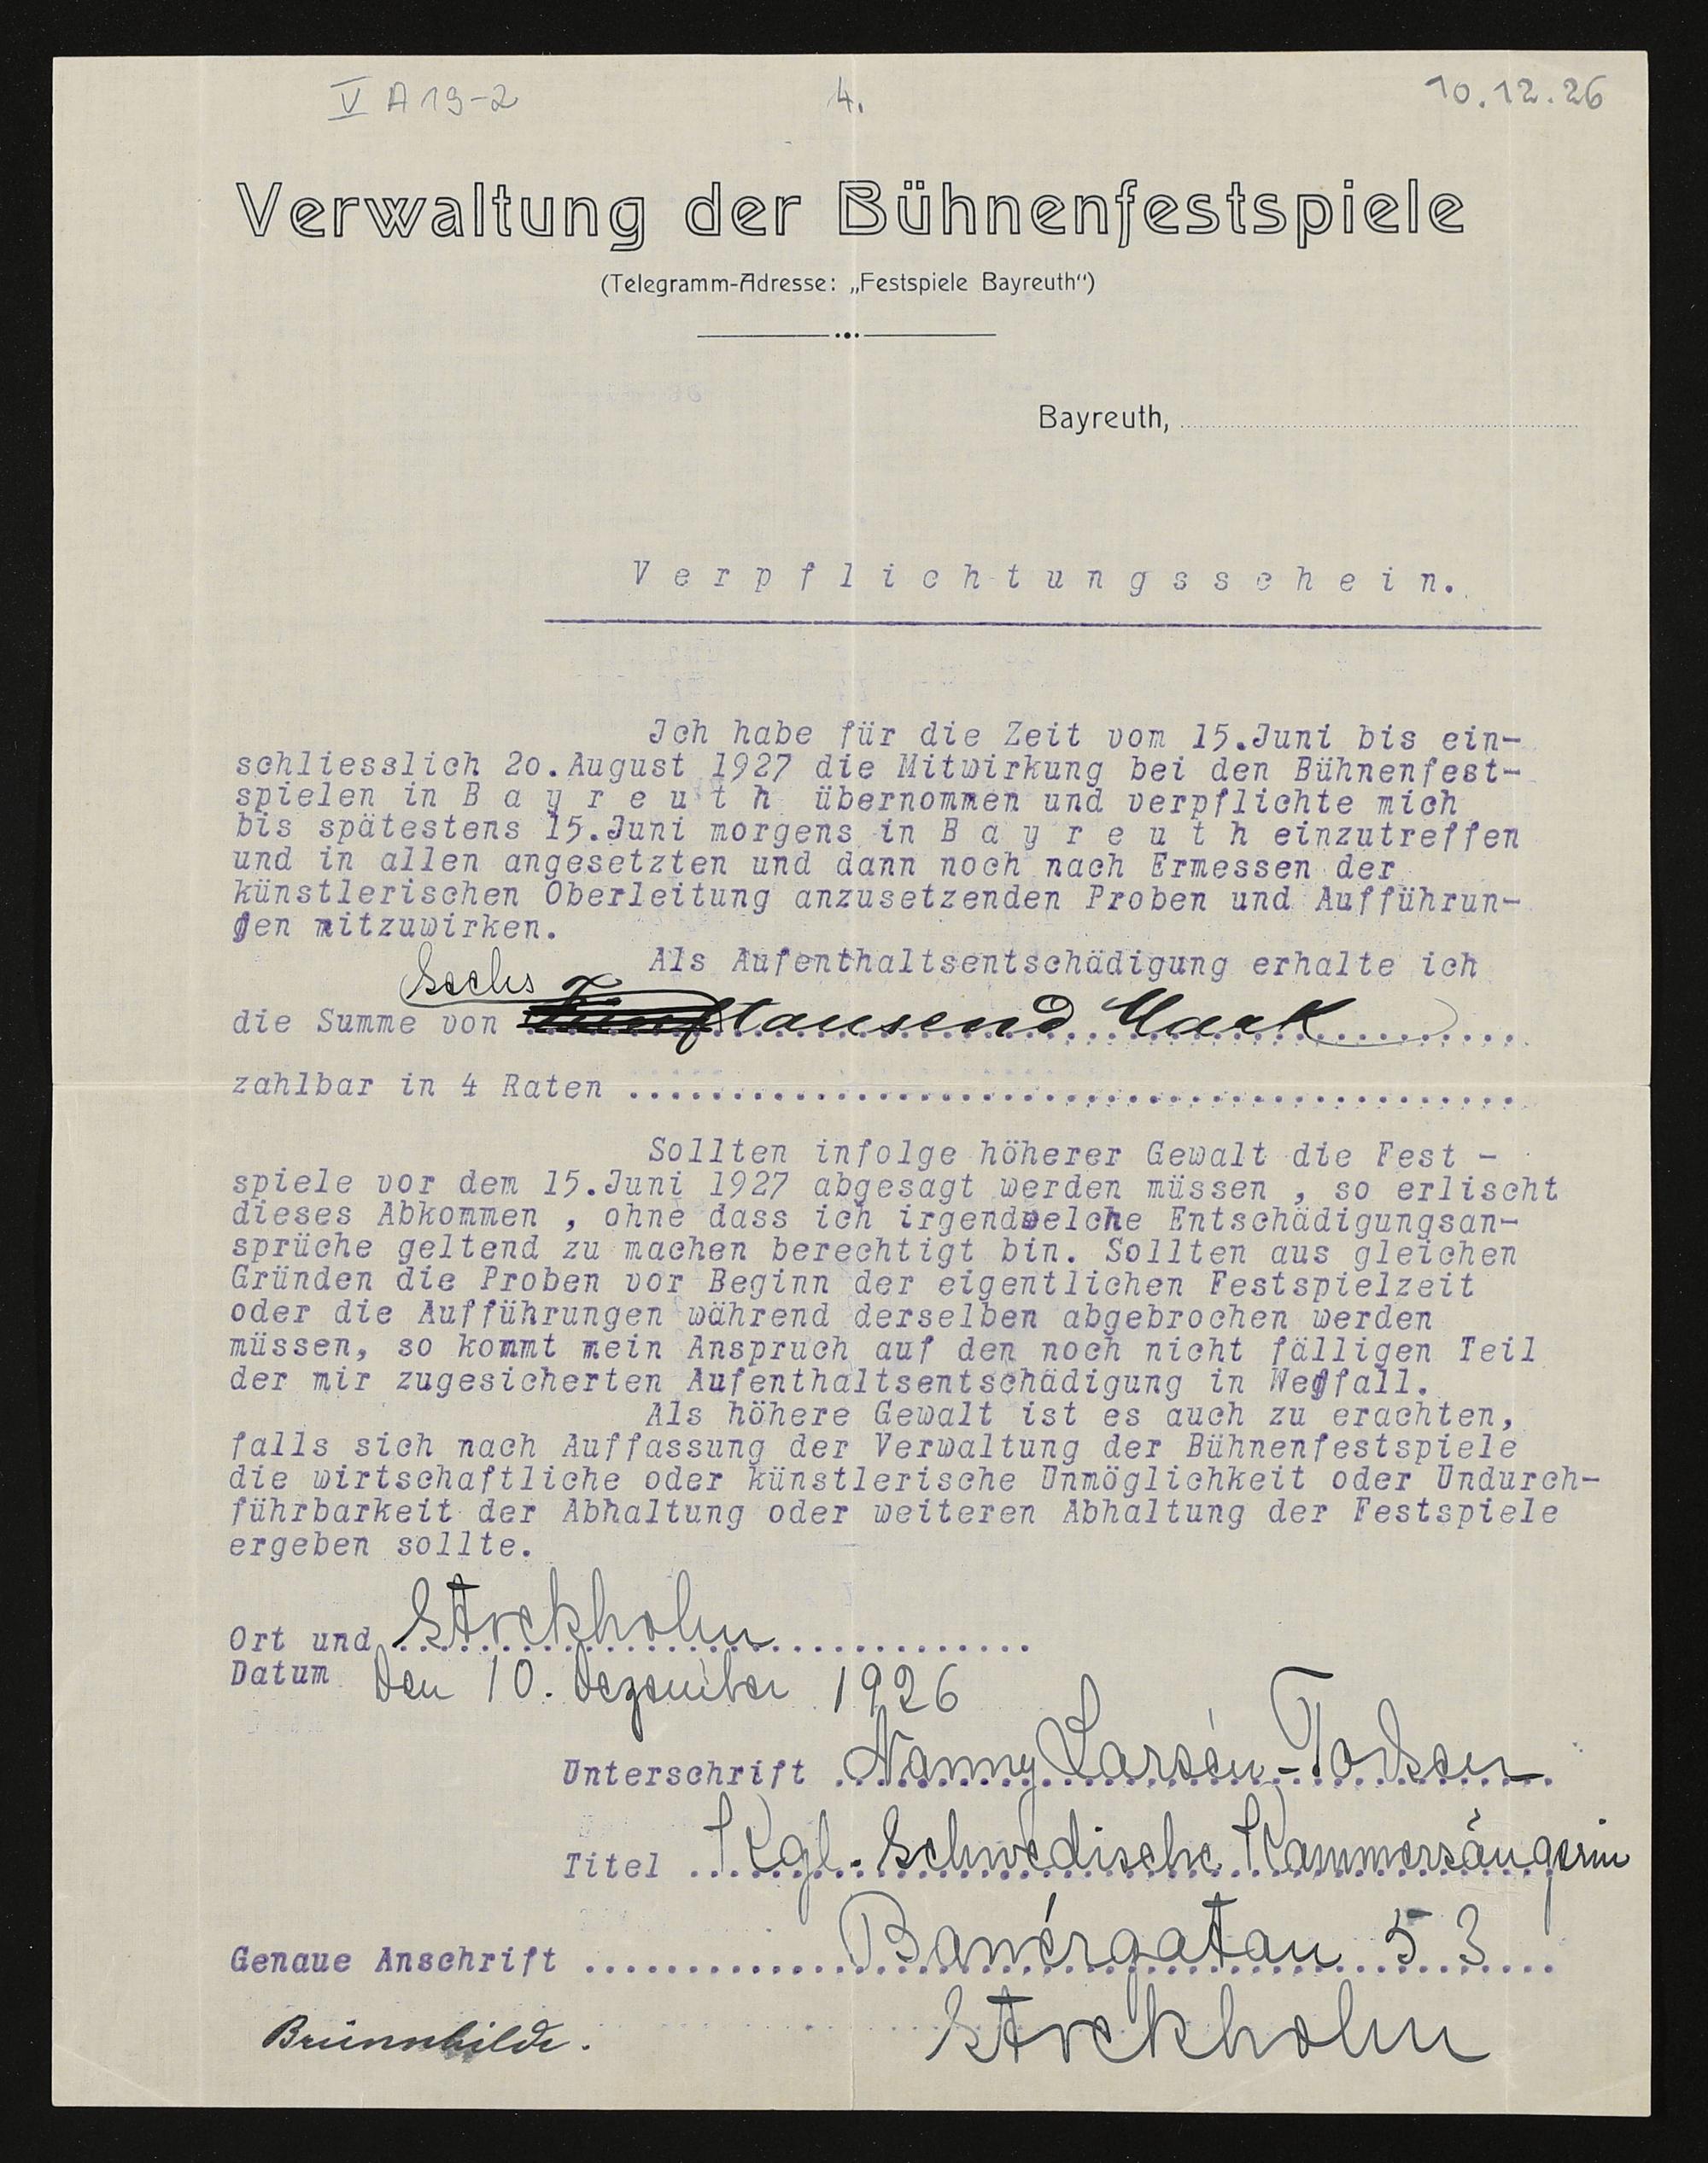 V A 19-2
4.
10.12.26
Verwaltung der Bühnenfestspiele
(Telegramm-Adresse: „Festspiele Bayreuth“)
Bayreuth,
Verpflichtungsschein.
Ich habe für die Zeit vom 15.Juni bis ein-
schliesslich 2o.August 1927 die Mitwirkung bei den Bühnenfest-
spielen in B a y r e u t h übernommen und verpflichte mich
bis spätestens 15.Juni morgens in B a y r e u t h einzutreffen
und in allen angesetzten und dann noch nach Ermessen der
künstlerischen Oberleitung anzusetzenden Proben und Aufführun-
gen mitzuwirken.
Als Aufenthaltsentschädigung erhalte ich
Sechs
die Summe von Fünftausend Mark
zahlbar in 4 Raten
Sollten infolge höherer Gewalt die Fest -
spiele vor dem 15.Juni 1927 abgesagt werden müssen , so erlischt
dieses Abkommen , ohne dass ich irgendwelche Entschädigungsan-
sprüche geltend zu machen berechtigt bin. Sollten aus gleichen
Gründen die Proben vor Beginn der eigentlichen Festspielzeit
oder die Aufführungen während derselben abgebrochen werden
müssen, so kommt mein Anspruch auf den noch nicht fälligen Teil
der mir zugesicherten Aufenthaltsentschädigung in Wegfall.
Als höhere Gewalt ist es auch zu erachten,
falls sich nach Auffassung der Verwaltung der Bühnenfestspiele
die wirtschaftliche oder künstlerische Unmöglichkeit oder Undurch-
führbarkeit der Abhaltung oder weiteren Abhaltung der Festspiele
ergeben sollte.
Ort und Stockholm
Datum den 10. Dezember 1926
Unterschrift Nanny Larsén-Todsen
Titel Kgl. Schwedische Kammersängerin
Genaue Anschrift Banérgatan 53
Brünnhilde.
Stockholm